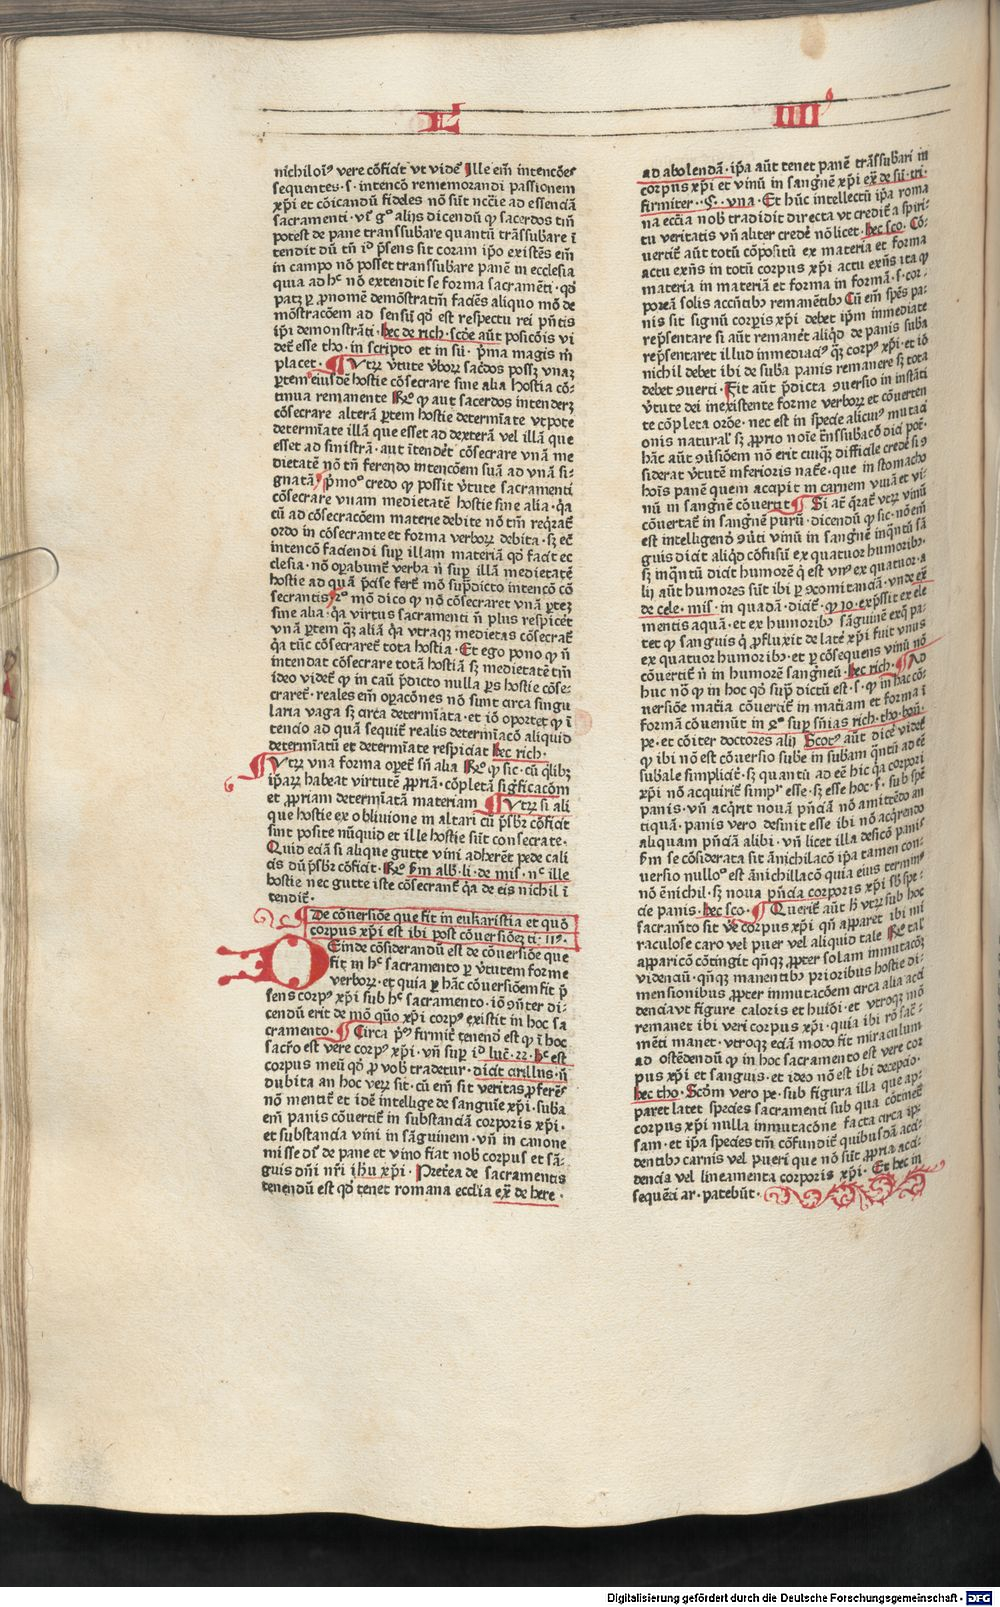 L IIII
nichiloı⁹ vere cōficit vt videt̄ Ille em̄ intencōes
sequentes · s · intencō rememorandi passionem
xp̄i et cōicandū fideles nō sūt nccīe ad essenciā
sacramenti · vl̄ gͦ alijs dicendū ꝙ sacerdos tm̄
potest de pane transsubare quantū trāssubare ī
tendit dū tn̄ iͩ p̄sens sit coram ip̄o existēs em̄
in campo nō posset transsubare panē in ecclesia
quia ad hͨ nō extendit se forma sacramēti · qd̓
patꝫ ꝑ ꝓnomē demōstratm̄ faciēs aliquo mō de
mōstracōem ad sensū qd̓ est respectu rei p̄ntis
ip̄i demonstrāti · hec de rich · scōe aūt posicōis vi
det̄ esse tho · in scripto et in sū · p̄ma magis m̄
placet · ¶ Vtrꝫ v̓tute v̓borꝫ sac̓dos possꝫ vnaꝫ
ꝑtem eiusdē hostie cōsecrare sine alia hostia cō
tinua remanente Rͦ ꝙ aut sacerdos intenderꝫ
cōsecrare alterā ꝑtem hostie determīate vtpote
determīate illā que esset ad dexterā vel illā que
esset ad sinistrā · aut ītendet̓ cōsecrare vnā me
dietatē nō tn̄ ferendo intencōem suā ad vnā si-
gnatā p̄moͦ credo ꝙ possit v̓tute sacramenti
cōsecrare vnam medietatē hostie sine alia · q̄a
cū ad cōsecracōem materie debite nō tm̄ reqͥrat̄
ordo in cōsecrante et forma verborꝫ debita · sꝫ ec̄
intencō faciendi suꝑ illam materiā qd̓ facit ec
clesia · nō oꝑabunt̄ verba n̄ suꝑ illā medietatē
hostie ad quā p̄cise feret̄ mō sup̄dicto intencō cō
secrantis 2ͦ mō dico ꝙ nō cōsecraret vnā ꝑteꝫ
sine alia · q̄a virtus sacramenti n̄ plus respicet
vnā ꝑtem qꝫ aliā q̄a vtraqꝫ medietas cōsecrat̄
q̄a tūc cōsecraret̄ tota hostia · Et ego pono ꝙ n̄
intendat cōsecrare totā hostiā sꝫ medietatē tm̄
ideo videt̄ ꝙ in caū p̄dicto nulla ꝑs hostie cōse-
craret̄ · reales em̄ oꝑacōnes nō sunt circa singu
laria vaga sꝫ circa determīata · et iō oportet ꝙ ī
tencio ad quā sequit̄ realis determīacō aliquid
determīatū et determīate respiciat hec rich ·
¶ Vtrꝫ vna forma oꝑet̄ sn̄ alia Rͦ ꝙ sic · cū qͥlibꝫ
ip̄aꝝ habeat virtutē ꝓpriā · cōpletā sigficacōm
et ꝓpriam determīatā materiam ¶ Vtrꝫ si ali
que hostie ex obliuione in altari cū p̄sbr̄ cōficit
sint posite nūquid et ille hostie sūt consecrate ·
Quid eciā si alique gutte vini adherēt pede cali
cis dū p̄sbr̄ cōficit · Rͦ s̄m alb̄ · li · de mis · nͨ ille
hostie nec gutte iste cōsecrant̄ q̄a de eis nichil ī
tendit̄ ·
De cōuersiōe que fit in eukaristia et quō
corpus xp̄i est ibi post cōuersiōeꝫ ti · II⁹ ·
DEinde cōsiderandū est de cōuersiōe que
fit in hͨ sacramento ꝑ v̓tutem forme
verborꝫ · et quia ꝑ hāc cōuersiōem fit p̄
sens corp⁹ xp̄i sub hͨ sacramento · iō ꝯn̄ter di-
cendū erit de mō quō xp̄i corp⁹ existit in hoc sa
cramento · ¶ Circa p̄ᵐ firmit̄ tenend̄ est ꝙ ī hoc
sac̄ro est vere corp⁹ xp̄i · vn̄ suꝑ iͩ luc̄ · 22 · hͨ est
corpus meū qd̓ ꝓ vob̄ tradetur · dicit cirillus · n̄
dubita an hoc verꝫ sit · cū em̄ sit veritas ꝓferēs
nō mentit̄ et idē intellige de sanguīe xp̄i · suba
em̄ panis cōuertit̄ in substanciā corporis xp̄i ·
et substancia vini in sāguinem · vn̄ in canone
misse dr̄ de pane et vino fiat nob̄ corpus et sā-
guis dn̄i nr̄i ih̄u xp̄i · Preterea de sacramentis
tenendū est qd̓ tenet romana ecclīa ex̄ de here ·
ad abolendā · ip̄a aūt tenet panē trāssubari in
corpus xp̄i et vinū in sangnē xp̄i ex̄ de sū · tri ·
firmiter · ꝯ · vna · Et hūc intellectū ip̄a roma
na ecclīa nob̄ tradidit directa vt credit̄ a spiri-
tu veritatis vn̄ aliter crede̓ nō licet · hec sco · Cō-
uertit̄ aūt totū cōpositū ex materia et forma
actu exn̄s in totū corpus xp̄i actu exn̄s ita ꝙ
materia in materiā et forma in formā · s · cor-
poreā solis accn̄tibꝫ remanētibꝫ Cū em̄ spēs pa-
nis sit signū corꝑis xp̄i debet ip̄m immediate
rep̄sentare si aūt remanet̄ aliqͥd de panis suba
rep̄sentaret illud immediaci⁹ qꝫ corp⁹ xp̄i · et iō
nichil debet ibi de suba panis remanere sꝫ tota
debet ꝯuerti · Fit aūt p̄dicta ꝯuersio in instāti
v̓tute dei inexistente forme verborꝫ et cōuerten
te cōpleta ordōe · nec est in specie alicui⁹ mutaci
onis natural̓ sꝫ ꝓprio noīe t̄nssubacō dici pot̄ ·
hāc aūt ꝯuſiōem nō erit cuiqꝫ difficile crede̓ si ꝯ
siderat v̓tutē inferioris nat̄e · que in stomacho
hoīs panē quem accipit in carnem viuā et vi
nū in sangnē cōuertit ¶ Si at̄ q̄rat̄ vtrꝫ vinū
cōuertat̄ in sangnē purū · dicendū ꝙ sic · nō em̄
est intelligend̄ ꝯūti vinū in sangnē inqͣntū sā
guis dicit aliqͥd cōfusū ex quatuor humoribꝫ ·
sꝫ inqͣntū dicit humorē qͥ est vn⁹ ex quatuor · a
lij aūt humores sūt ibi ꝑ ꝯcomitanciā · vnde ex̄
de cele · mis · in quadā · dicit̄ · ꝙ Io · exp̄ssit ex ele
mentis aquā · et ex humoribꝫ sāguinē exqͦ pa-
tet ꝙ sanguis qͥ ꝓfluxit de late̓ xp̄i fuit vnus
ex quatuor humoribꝫ · et ꝑ cōsequens vinū nō
cōuertit̄ n̄ in humorē sangneū · hec rich · ¶ Ad
huc nō qͥ in hoc qd̓ sup̄ dictū est · s · ꝙ in hac cō-
uersiōe mat̄ia cōuertit̄ in mat̄iam et forma ī
formā cōueniūt in 4ͦ suꝑ sn̄ias rich · tho · bon̄ ·
pe · et cōiter doctores alij Scot⁹ aūt dicē videt̄
ꝙ ibi nō est cōuersio sube in subam qͣntū ad eē
subale simplicit̄ · sꝫ quantū ad eē hic q̄a corpori
xp̄i nō acquirit̄ simpr̄ esse · sꝫ esse hoc · s · sub spē
panis · vn̄ acqͥrit nouā p̄nciā nō amittēdo an
tiquā · panis vero desinit esse ibi nō acqͥrendo
aliquam p̄nciā alibi · vn̄ licet illa desicō panis
s̄m se cōsiderata sit ānichilacō ip̄a tamen con-
uersio nulloͦ est ānichillacō quia eius termin⁹
nō ēnichil · sꝫ noua p̄ncia corporis xp̄i sꝫ spe-
cie panis · hec sco · ¶ Querit̄ aūt h̄ vtrꝫ sub hoc
sacram̄to sit ve̓ corpus xp̄i qn̄ apparet ibi mi
raculose caro vel puer vel aliquid tale Rͦ tal̓
apparicō cōtingit qn̄qꝫ ꝓpter solam inmutacōꝫ
videnciū · qn̄qꝫ manentibꝫ prioribus hostie di-
mensionibus ꝓpter inmutacōem circa alia acci
dencia vt figure caloris et hui⁹di · et vtroqꝫ mō
remanet ibi veri corpus xp̄i · quia ibi rō sac̄-
mēti manet · vtroqꝫ eciā modo fit miraculum
ad ostēdendū ꝙ in hoc sacramento est vere cor
pus xp̄i et sanguis · et ideo nō est ibi decepcio ·
hec tho · Scōm vero pe · sub figura illa que ap-
paret latet species sacramenti sub qua cōtinet̄
corpus xp̄i nulla inmutacōne facta circa ip-
sam · et ip̄a species tm̄ cōfundit̄ quibusdā acci-
dentibꝫ carnis vel pueri que nō sūt ꝓpria acci-
dencia vel lineamenta corporis xp̄i · Et hec in
sequēti ar · patebūt ·
Digitalisierung gefördert durch die Deutsche Forschungsgemeinschaft - DFG